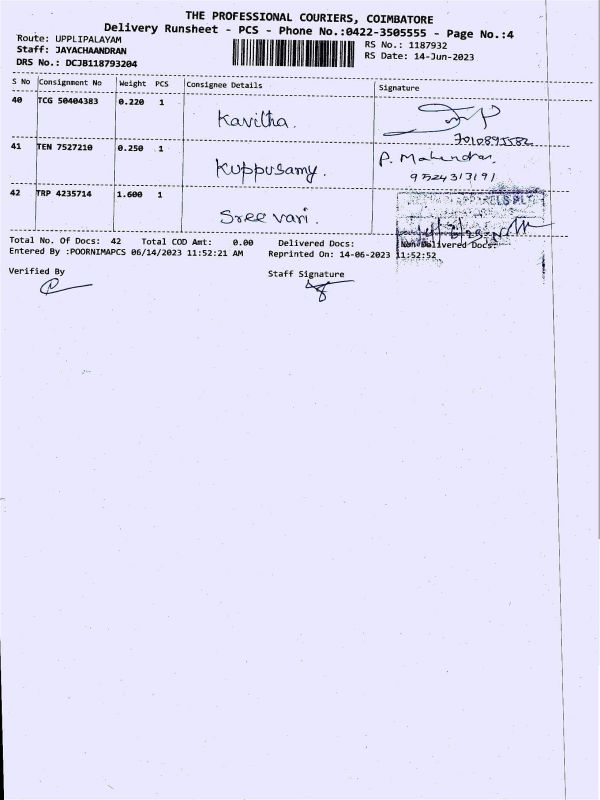 THE PROFESSIONAL COURIERS, COIMBATORE
Delivery Runsheet - PCS - Phone No.:0422-3505555 - Page No.:4
Route: UPPLIPALAYAM
Staff: JAYACHAANDRAN
DRS No.: DCJB118793204
RS No.: 1187932
RS Date: 14-Jun-2023
S No Consignment No Weight PCS Consignee Details Signature
40 TCG 50404383 0.220 1 Kavitha.
41 TEN 7527210 0.250 1 Kuppusamy. P. Mahendran.
9524313191
42 TRP 4235714 1.600 1 Sree vari.
Total No. Of Docs: 42 Total COD Amt: 0.00 Delivered Docs: Non-Delivered Docs:
Entered By :POORNIMAPCS 06/14/2023 11:52:21 AM Reprinted On: 14-06-2023 11:52:52
Verified By Staff Signature